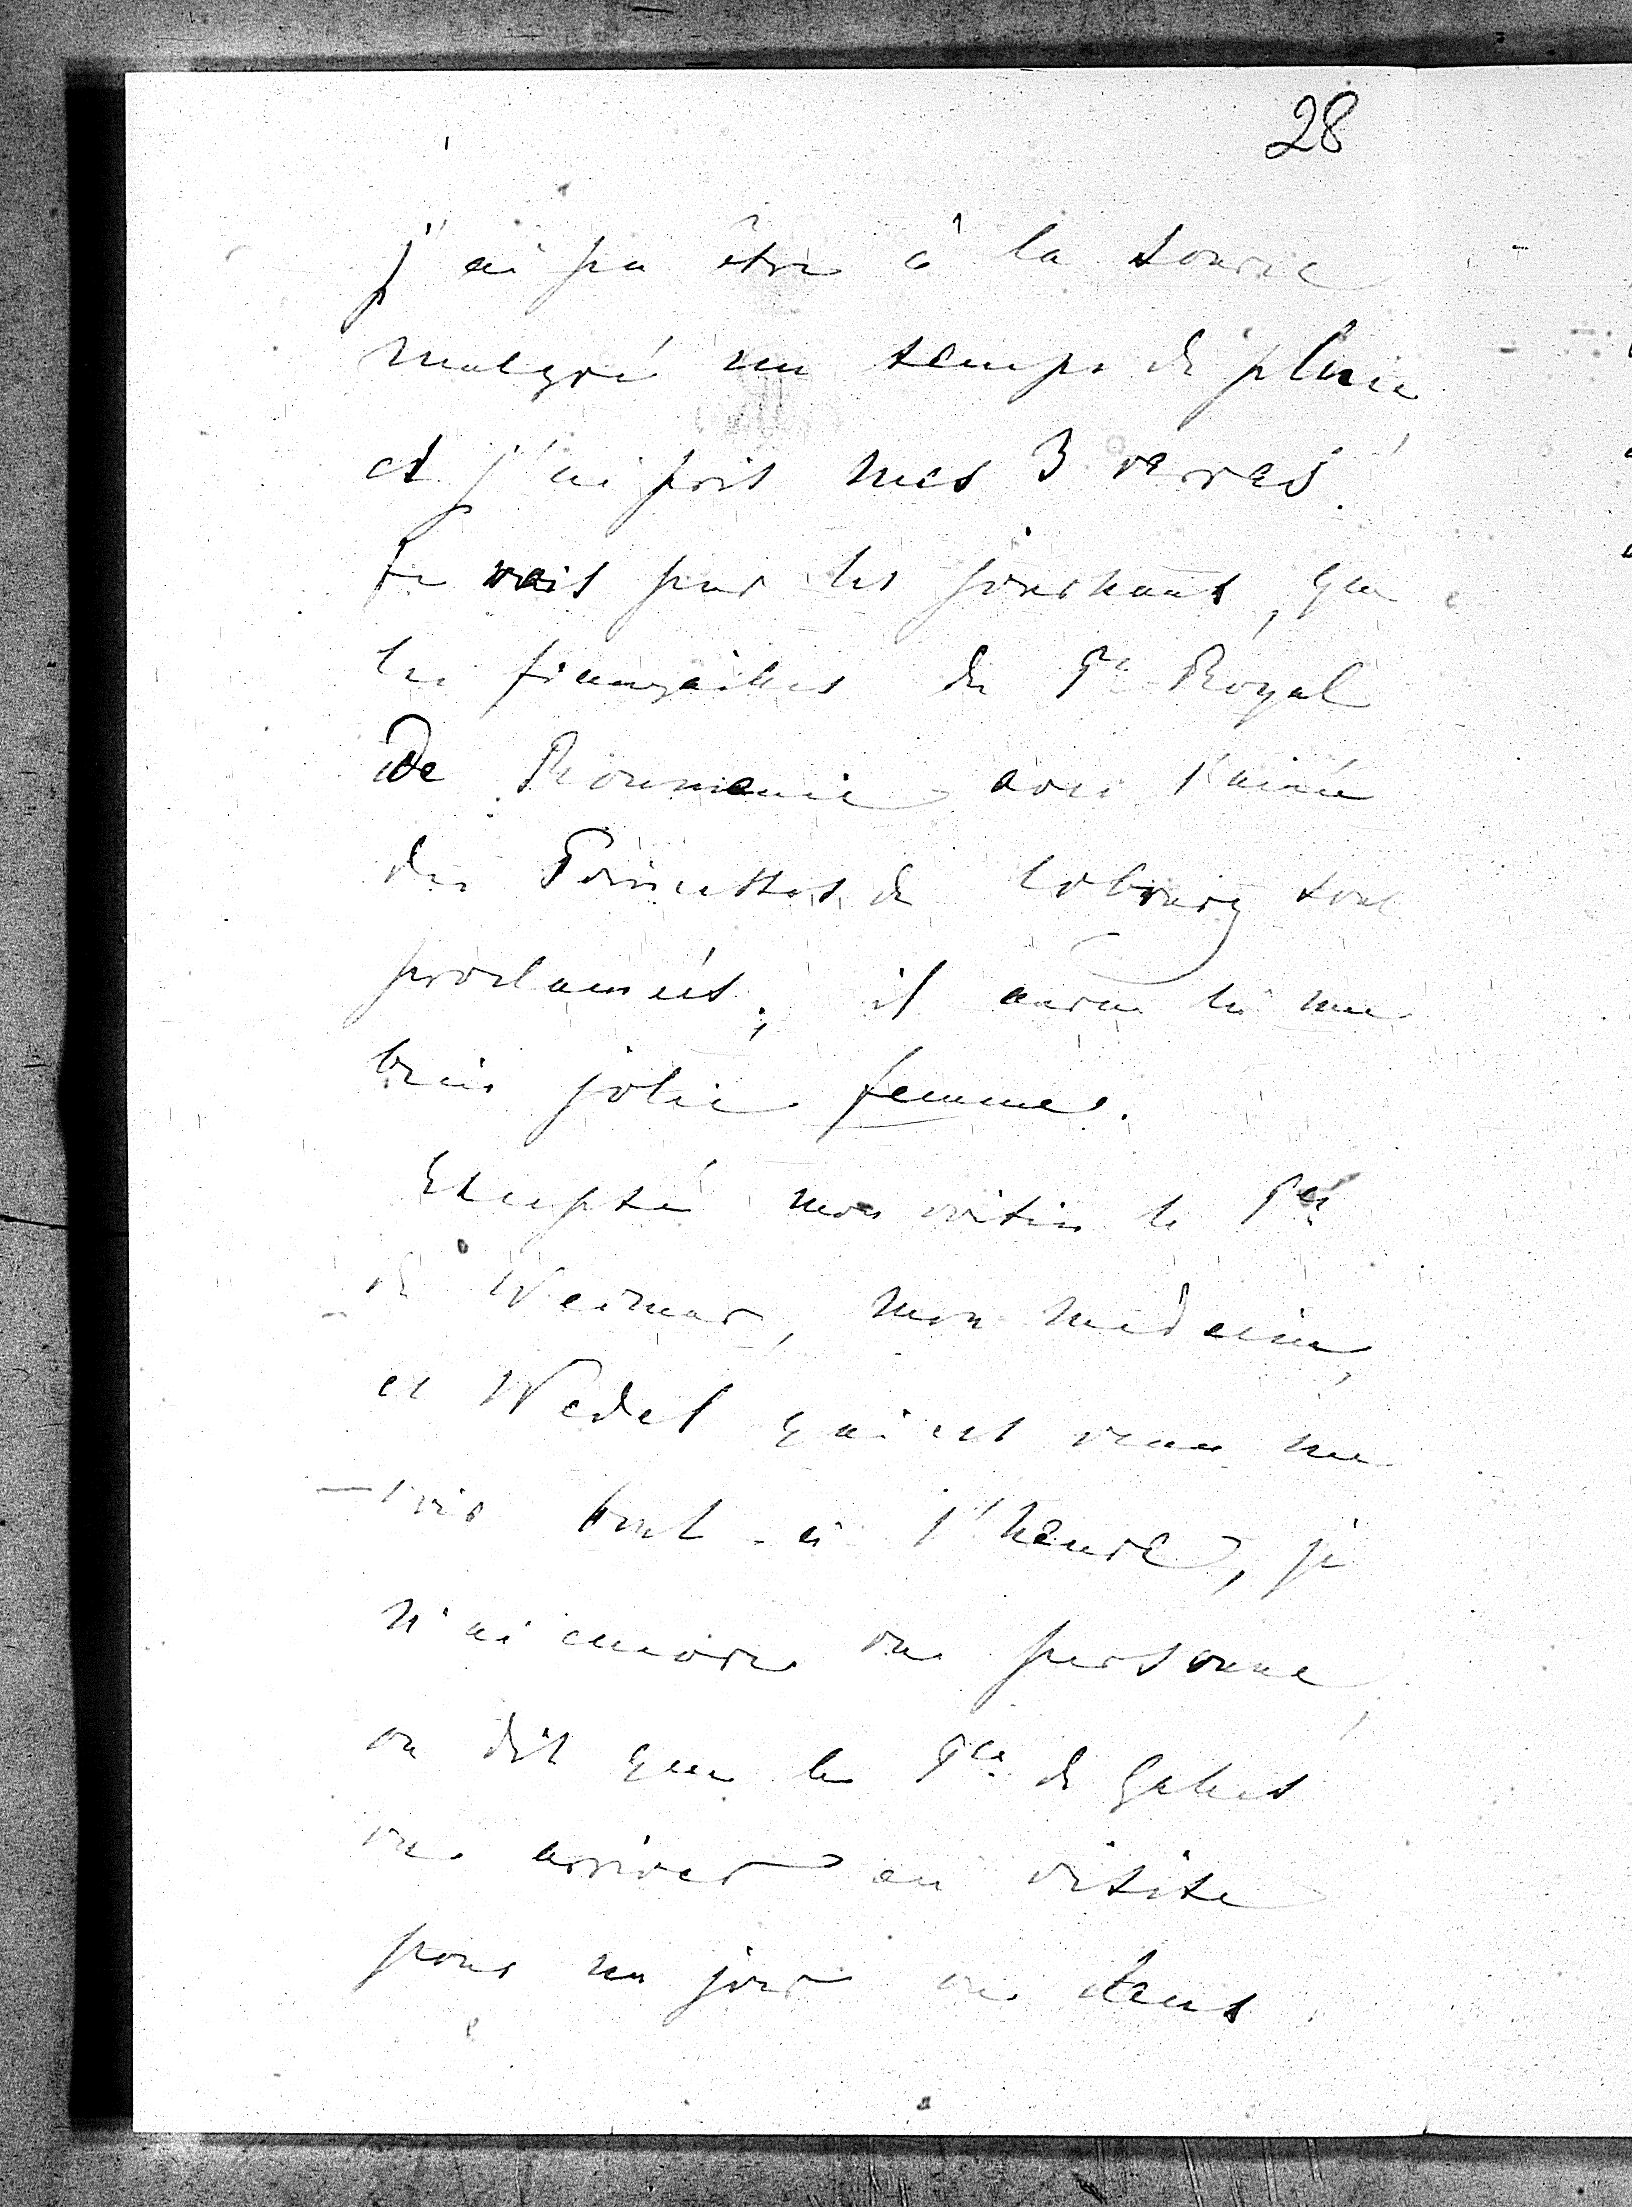 28
j'ai pu être à la source
malgré un temps de pluie
et j'ai pris mes 3 verres!
Je vois par les journaux, que
les fiançailles du Pce Royal
de Roumanie avec l'ainée
des Princesses de Cobourg sont
proclamées; il aura là une
bien jolie femme.
Excepté mon voisin le Pce
de Weimar, mon médecin,
et Wedel qui est venu me
voir tout-à l'heure, je
n'ai encore vu personne,
on dit que le Pce de Galles
va arriver en visite
pour un jour ou deux.